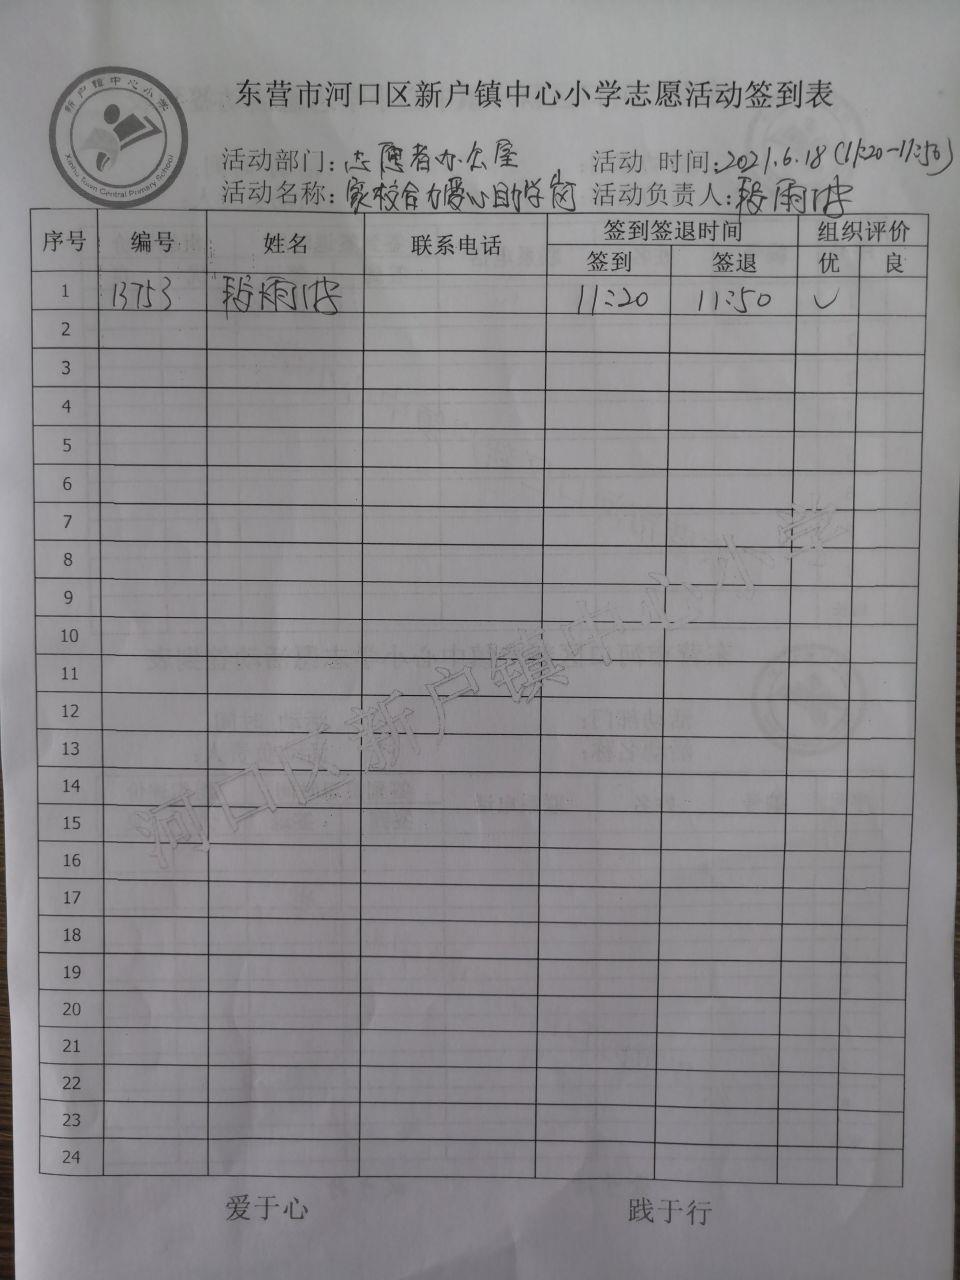 新户镇中心小学
Xinhu Town Central Primary School
东营市河口区新户镇中心小学志愿活动签到表
活动部门：志愿者办公室 活动 时间：2021.6.18（11:20-11:50）
活动名称：家校合力爱心助学岗 活动负责人：段雨
序号 编号 姓名 联系电话 签到签退时间 组织评价
签到 签退 优 良
1 13753 段雨 11:20 11:50 ✓
2
3
4
5
6
7
8
9
10
11
12
13
14
15
16
17
18
19
20
21
22
23
24
河口区新户镇中心小学
爱于心 践于行